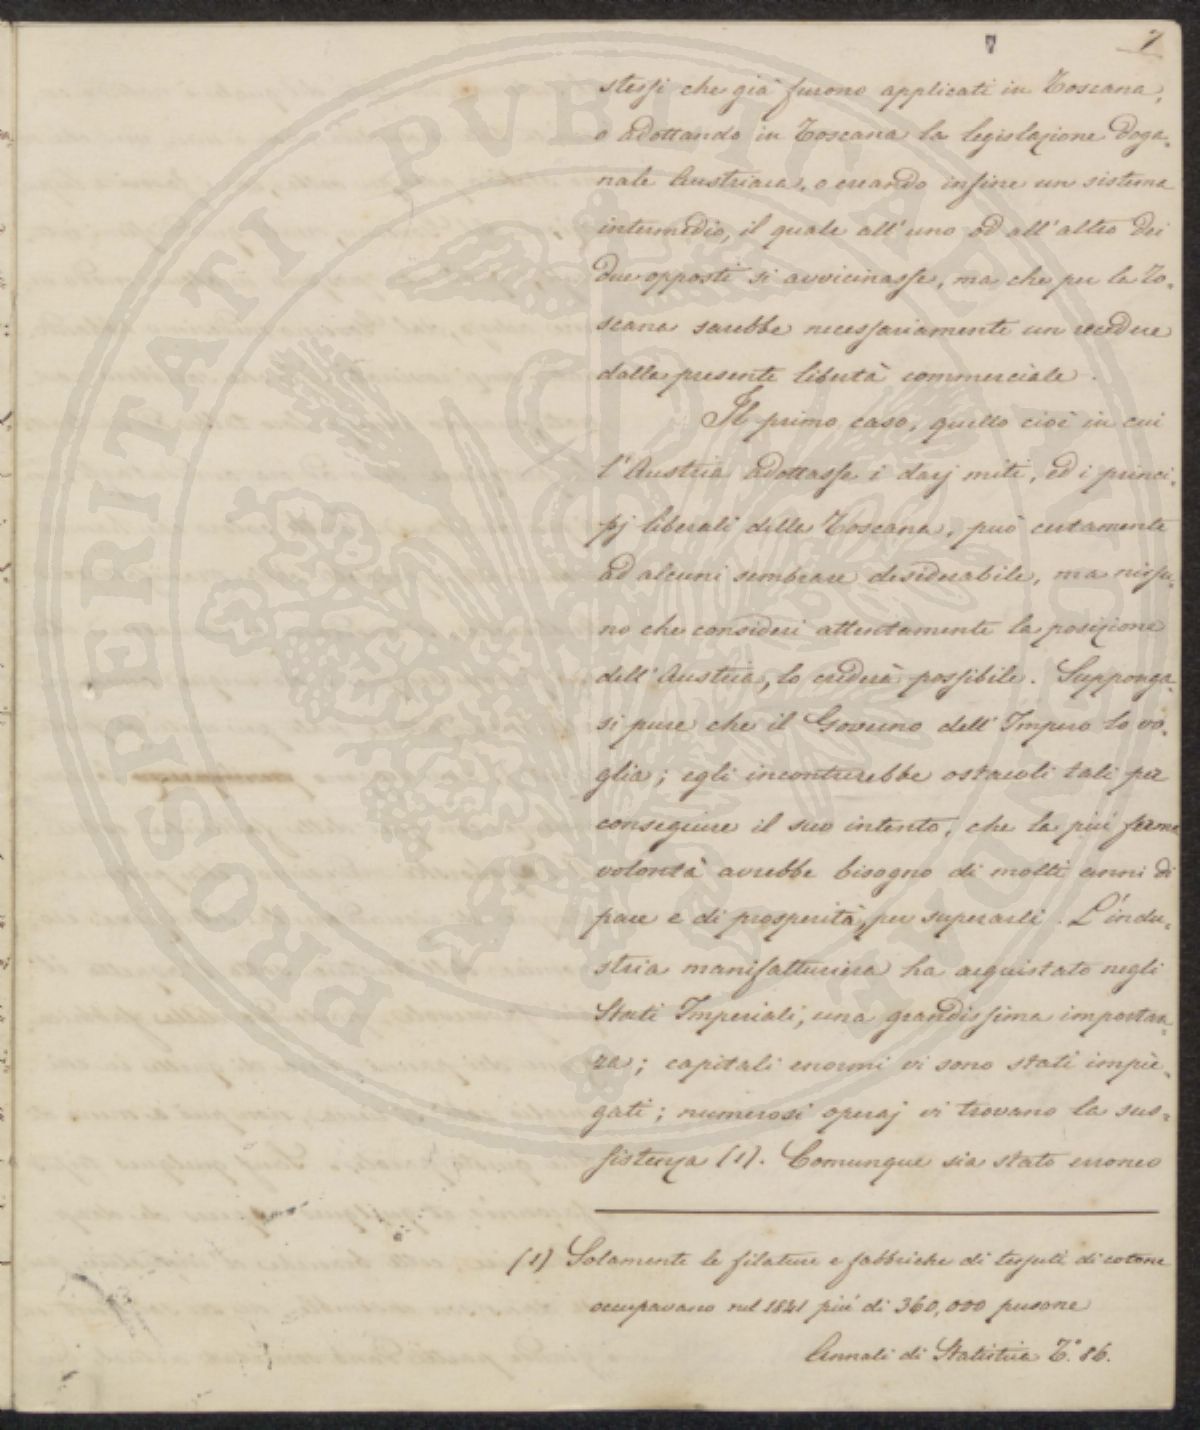 7
7
stessi che già furono applicati in Toscana,
o adottando in Toscana la legislazione Doga=
nale Austriaca, o creando infine un sistema
intermedio, il quale all'uno od all'altro dei
due opposti si avvicinasse, ma che per la To=
scana sarebbe necessariamente un recedere
dalla presente libertà commerciale.
Il primo caso, quello cioè in cui
l'Austria adottasse i dazj miti, ed i princi=
pj liberali della Toscana, può certamente
ad alcuni sembrare desiderabile, ma nissu=
no che consideri attentamente la posizione
dell'Austria, lo crederà possibile. Supponga=
si pure che il Governo dell'Impero lo vo=
glia; egli incontrerebbe ostacoli tali per
conseguire il suo intento, che la più ferma
volontà avrebbe bisogno di molti anni di
pace e di prosperità, per superarli. L'indu=
stria manifatturiera ha acquistato negli
Stati Imperiali, una grandissima importan=
za; capitali enormi vi sono stati impie=
gati; numerosi operaj vi trovano la sus=
sistenza (1). Comunque sia stato erroneo
(1) Solamente le filature e fabbriche di tessuti di cotone
occupavano nel 1841 più di 360,000 persone
Annali di Statistica T.° 86.
PROSPERITATI PVBLICAE AVGENDAE